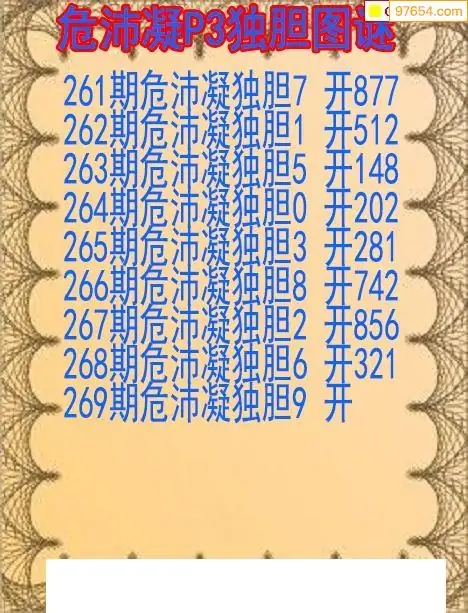 97654.com
危沛凝P3独胆图谜
261期危沛凝独胆7 开877
262期危沛凝独胆1 开512
263期危沛凝独胆5 开148
264期危沛凝独胆0 开202
265期危沛凝独胆3 开281
266期危沛凝独胆8 开742
267期危沛凝独胆2 开856
268期危沛凝独胆6 开321
269期危沛凝独胆9 开